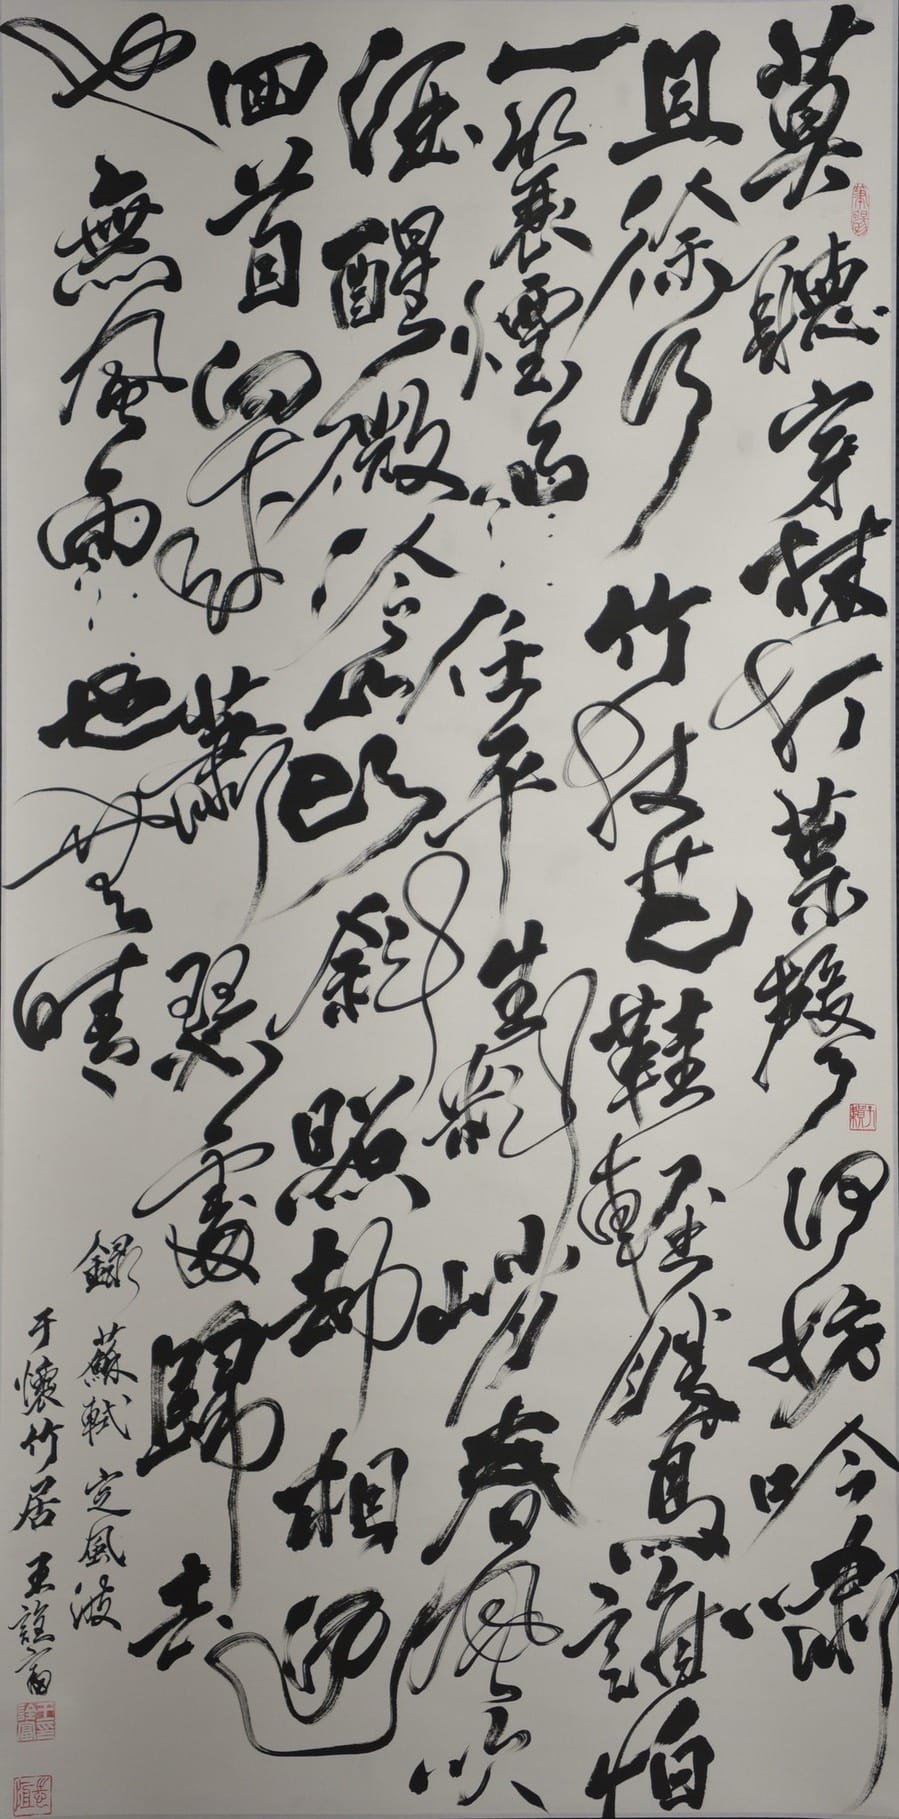 莫聽穿林打葉聲何妨吟嘯
且徐行竹杖芒鞋輕勝馬誰怕
一蓑煙雨任平生料峭春風吹
酒醒微冷山頭斜照却相迎
回首向來蕭瑟處歸去
也無風雨也無晴
錄蘇軾定風波
于懷竹居王詮富